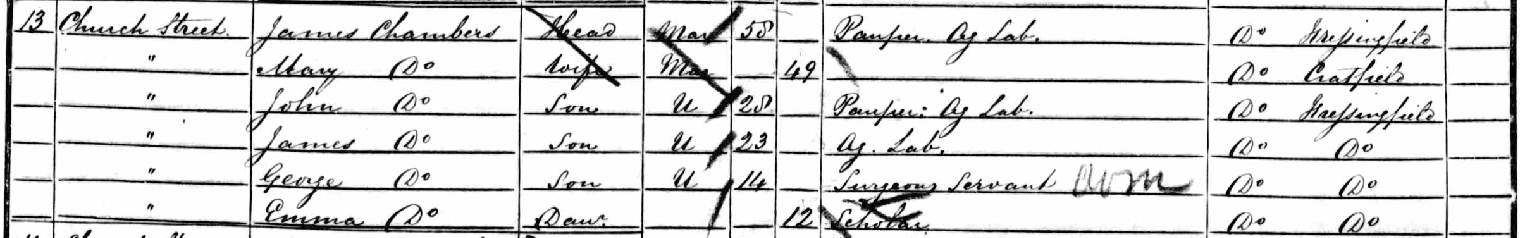 13 Church Street. James Chambers Head Mar 58 Pauper. Ag Lab. Do Fressingfield
" Mary Do Wife Mar 49 Do Cratfield
" John Do Son U 28 Pauper: Ag Lab. Do Fressingfield
" James Do Son U 23 Ag. Lab. Do Do
" George Do Son U 14 Surgeons Servant Dom Do Do
" Emma Do Daur. 12 Scholar Do Do